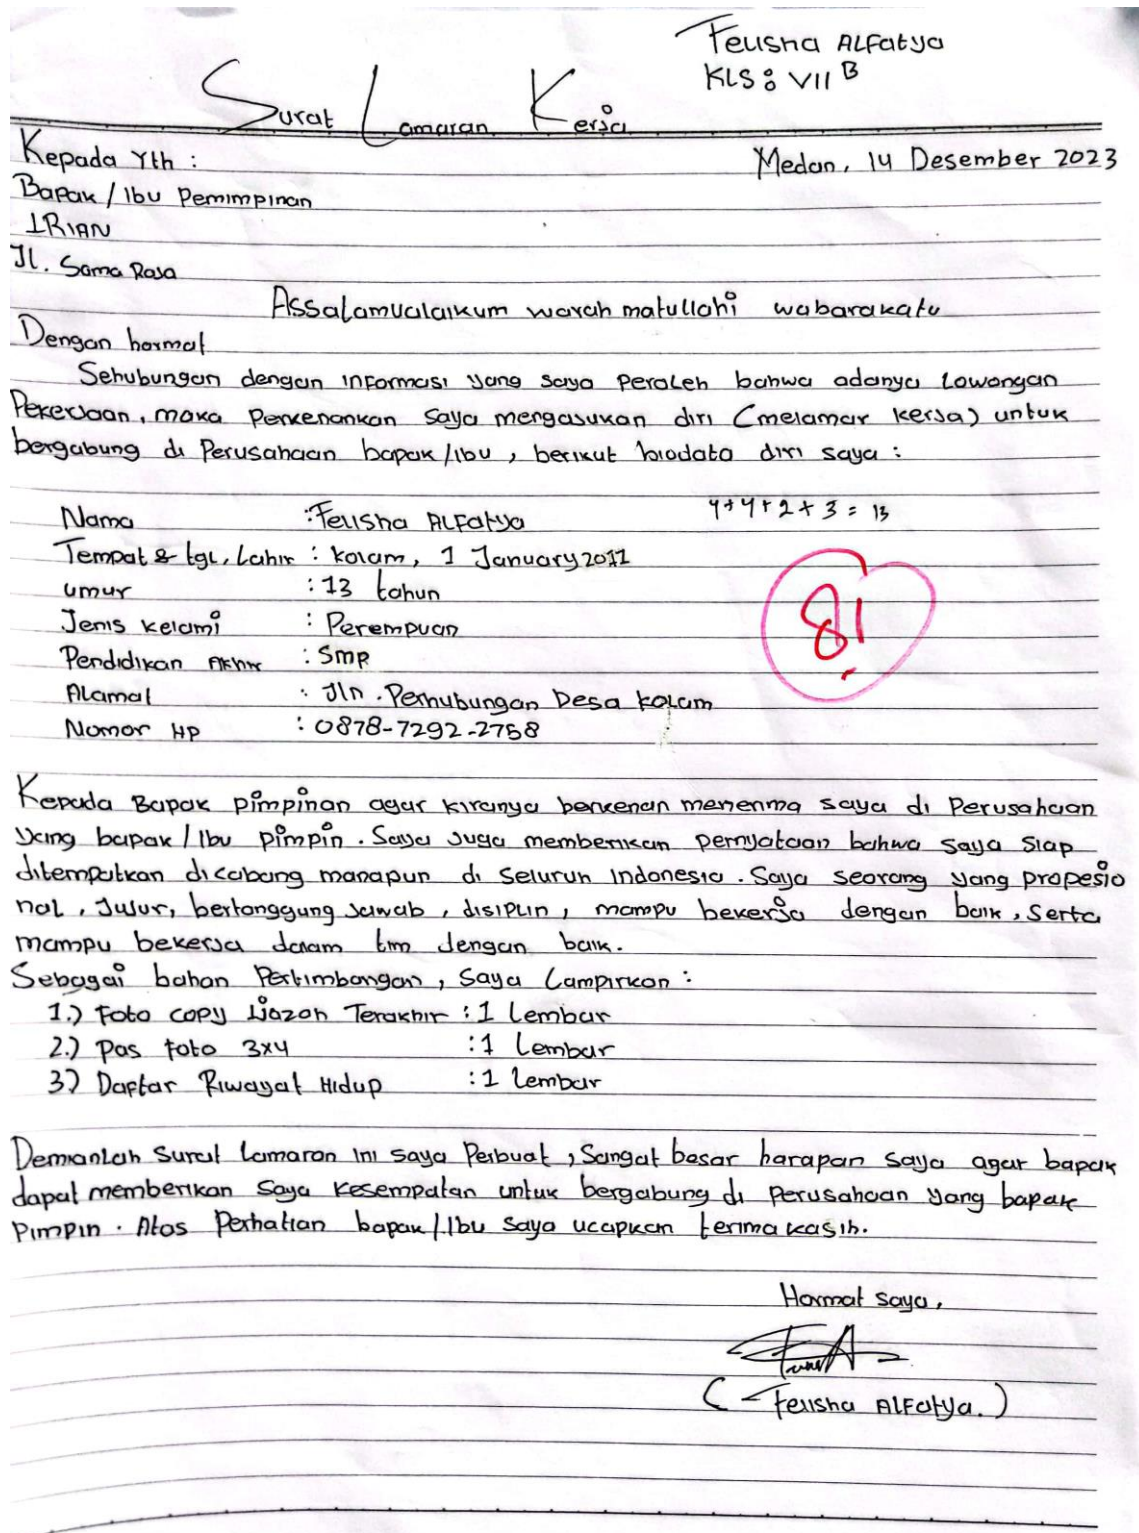 Felisha ALFatya
KLS : VII B
Surat Lamaran Kerja
Kepada Yth :
Medan, 14 Desember 2023
Bapak / Ibu Pemimpinan
IRIAN
Jl. Sama Rasa
Assalamualaikum warah matullahi wabarakatu
Dengan hormat
Sehubungan dengan informasi yang saya peroleh bahwa adanya Lowongan
Pekerjaan, maka perkenankan saya mengajukan diri (melamar kerja) untuk
bergabung di Perusahaan bapak/ibu, berikut biodata diri saya :
Nama : Felisha ALFatya
4+4+2+3 = 13
Tempat & tgl, Lahir : kolam, 1 January 2011
umur : 13 tahun
81
Jenis kelami : Perempuan
Pendidikan Akhir : Smp
Alamat : Jln. Perhubungan Desa kolam
Nomor HP : 0878-7292-2758
Kepada Bapak pimpinan agar kiranya berkenan menerima saya di Perusahaan
yang bapak / Ibu pimpin. Saya Juga memberikan pernyataan bahwa saya siap
ditempatkan dicabang manapun di Seluruh Indonesia. Saya seorang yang propesio
nal, Jujur, bertanggung Jawab, disiplin, mampu bekerja dengan baik, Serta
mampu bekerja dalam tim dengan baik.
Sebagai bahan Pertimbangan, Saya Lampirkan :
1.) Foto copy Ijazah Terakhir : 1 Lembar
2.) Pas foto 3x4 : 1 Lembar
3) Daftar Riwayat Hidup : 1 Lembar
Demianlah Surat Lamaran ini saya Perbuat, Sangat besar harapan saya agar bapak
dapat memberikan saya kesempatan untuk bergabung di perusahaan yang bapak
Pimpin. Atas Perhatian bapak/Ibu saya ucapkan terima kasih.
Hormat saya,
(Felisha ALFatya.)